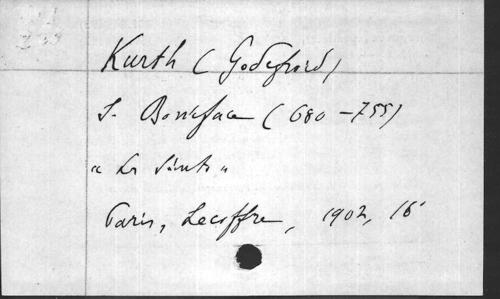 Kurth (Godefroid)
S. Boniface (680-755)
"Les Saints"
Paris, Lecoffre, 1902, 16°